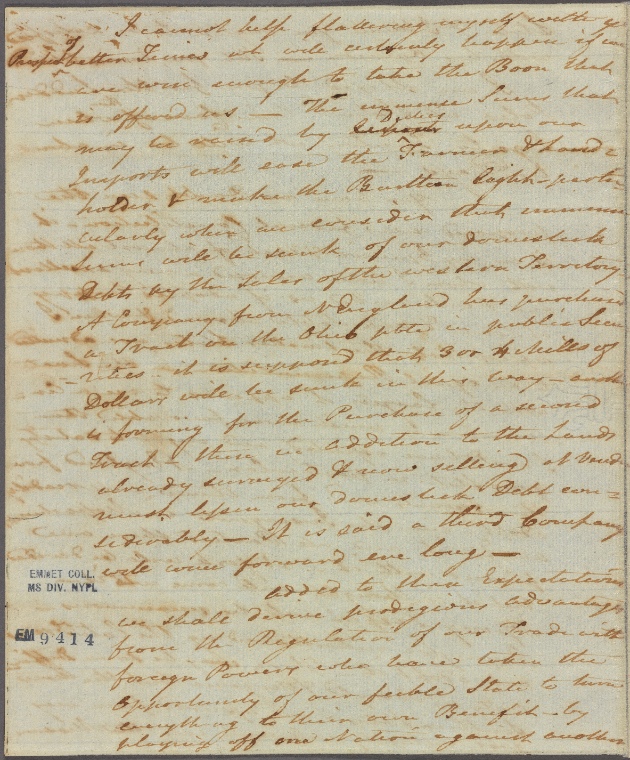 I cannot help flattering myself with ye
Prospect of better Times wh. will certainly happen if we
are wise enough to take the Boon that
is offered us — The immense Sums that
may be raised by Duties upon our
Imports will ease the Farmer & Land=
holder & make the Burthen light – parti
cularly when we consider that immense
Sums will be sunk of our domestick
Debts by the Sales of the western Territory
A Company from N England has purchased
a Tract on the Ohio pble in public Secu
=rities it is supposed that 3 or 4 Mills of
Dollars will be sunk in this way – another
is forming for the Purchase of a second
Tract – these in addition to the Lands
already surveyed & now selling at Vend
must lessen our domestick Debt con=
siderably – It is said a third Company
will come forward ere long —
added to these Expectations
we shall derive prodigious advantages
from the Regulation of our Trade with
foreign Powers who have taken the
opportunity of our feeble State to turn
everything to their own Benefit – by
playing off one Nation against another
EMMET COLL.
MS DIV. NYPL
EM 9414